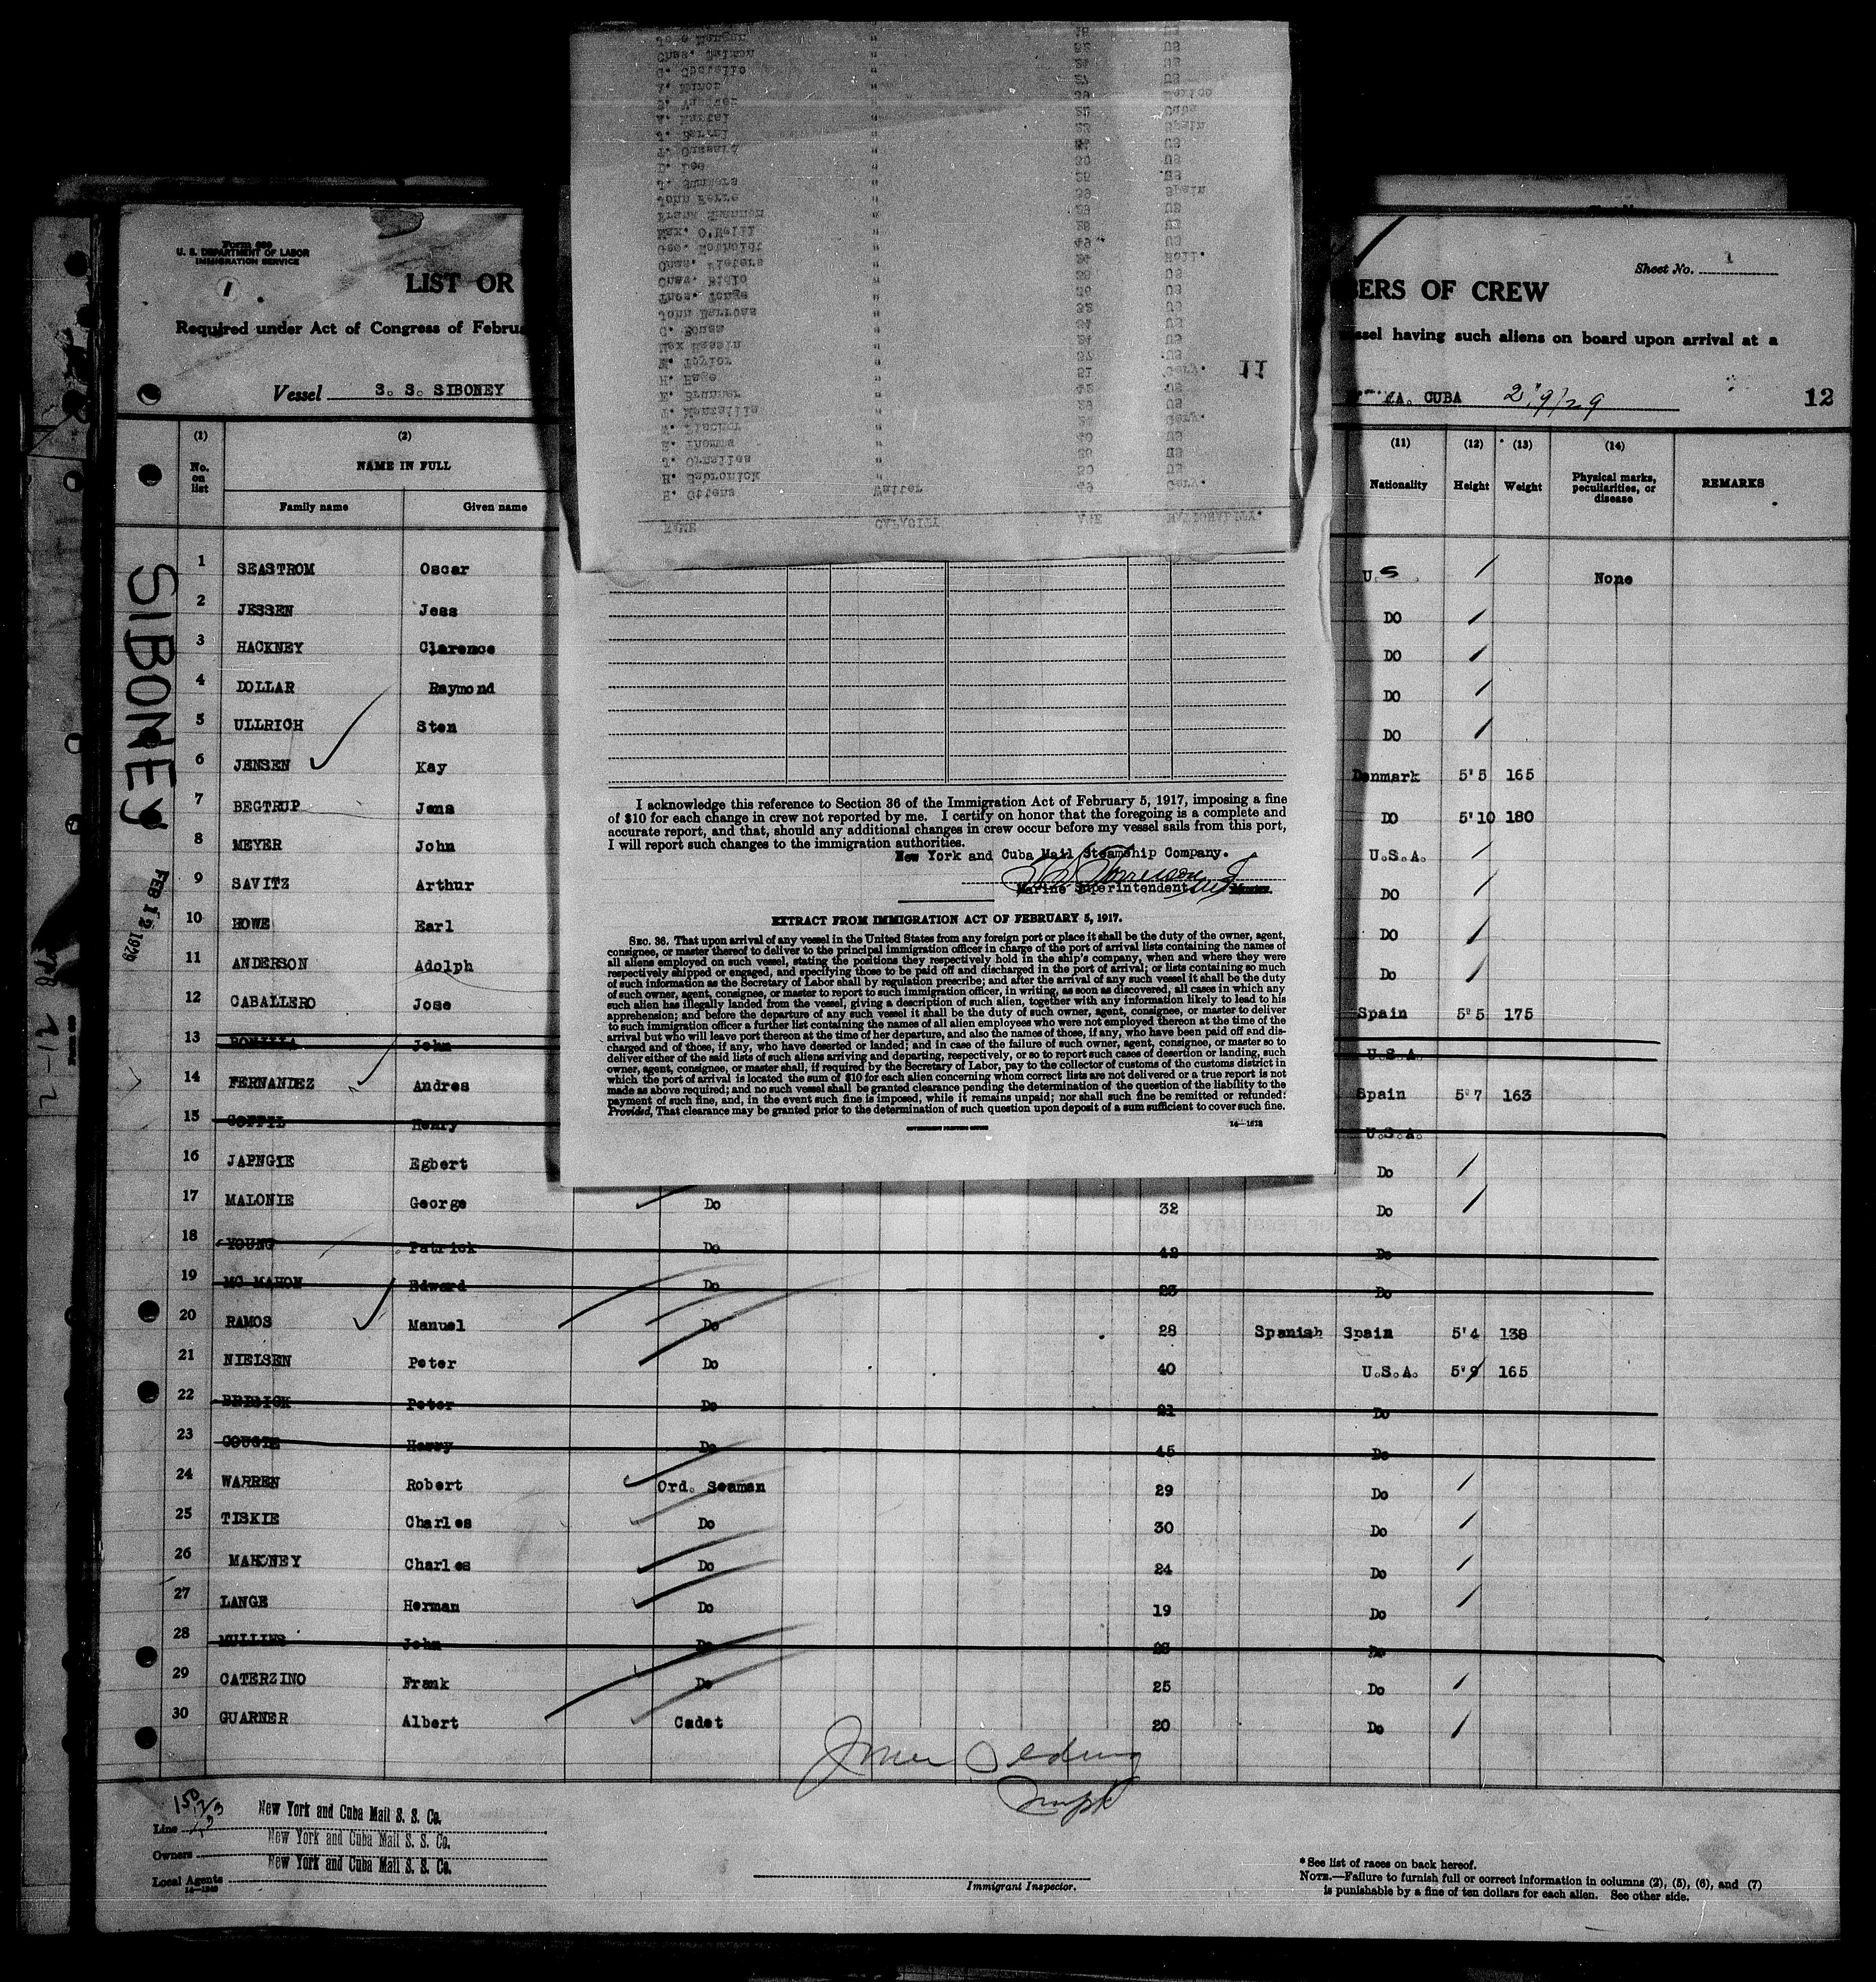 Form 689
U. S. DEPARTMENT OF LABOR
IMMIGRATION SERVICE
1
LIST OR
Required under Act of Congress of Februa
Vessel S. S. SIBONEY
Sheet No. 1
BERS OF CREW
essel having such aliens on board upon arrival at a
CUBA 2/9/29
12
(1) (2)
No. on list
NAME IN FULL
Family name Given name
(11) (12) (13) (14)
Nationality Height Weight Physical marks, peculiarities, or disease REMARKS
SIBONEY
FEB 12 1929
1 SEASTROM Oscar U.S None
2 JESSEN Jess DO
3 HACKNEY Clarence DO
4 DOLLAR Raymond DO
5 ULLRICH Sten DO
6 JENSEN Kay Denmark 5'5 165
7 BEGTRUP Jens DO 5'10 180
8 MEYER John U.S.A.
9 SAVITZ Arthur DO
10 HOWE Earl DO
11 ANDERSON Adolph Do
12 CABALLERO Jose Spain 5'5 175
13 John U.S.A.
14 FERNANDEZ Andres Spain 5'7 163
15 Henry U.S.A.
16 JAPNGIE Egbert Do
17 MALONIE George Do 32 Do
18 YOUNG Patrick Do 42 Do
19 MC MAHON Edward Do 23 Do
20 RAMOS Manuel Do 28 Spanish Spain 5'4 138
21 NIELSEN Peter Do 40 U.S.A. 5'9 165
22 Peter Do 21 Do
23 Harry Do 45 Do
24 WARREN Robert Ord. Seaman 29 Do
25 TISKIE Charles Do 30 Do
26 MAHONEY Charles Do 24 Do
27 LANGE Herman Do 19 Do
28 John Do Do
29 CATERZINO Frank Do 25 Do
30 GUARNER Albert Cadet 20 Do
Line New York and Cuba Mail S. S. Co.
Owners New York and Cuba Mail S. S. Co.
Local Agents New York and Cuba Mail S. S. Co.
Immigrant Inspector.
* See list of races on back hereof.
NOTE.—Failure to furnish full or correct information in columns (2), (5), (6), and (7)
is punishable by a fine of ten dollars for each alien. See other side.
11
NAME CAPACITY AGE NATIONALITY.
H. Ottens Waiter 49 Gery.
H. Sabronick " 30 US
J. Ornelles " US
E. Thomma " 40 US
W. Fischer " Gery.
T. Manzallis " US
E. Brunner " 42 US
H. Hage " 51 Gery.
M. Toylor " 37 US
Max Hassin " 24 US
C. Sousa " US
John Barross " 32 US
Thos. Tonge " US
Chas. Ridlo " US
Chas. Pieters " Holl.
Geo. Mothold " 49 US
Max. O'Neill " 28 US
Frank Shannon " US
John Ferre " 39 Spain
J. Summers " US
D. Lee " 30 US
T. Cussard " US
J. Bernal " Spain
A. Martal " Cuba
S. Vasiver " 39 Mexico
A. Minor " 27 US
C. Costello " US
Chas. Delmon " US
" US
I acknowledge this reference to Section 36 of the Immigration Act of February 5, 1917, imposing a fine
of $10 for each change in crew not reported by me. I certify on honor that the foregoing is a complete and
accurate report, and that, should any additional changes in crew occur before my vessel sails from this port,
I will report such changes to the immigration authorities.
New York and Cuba Mail Steamship Company.
Marine Superintendent
EXTRACT FROM IMMIGRATION ACT OF FEBRUARY 5, 1917.
SEC. 36. That upon arrival of any vessel in the United States from any foreign port or place it shall be the duty of the owner, agent,
consignee, or master thereof to deliver to the principal immigration officer in charge of the port of arrival lists containing the names of
all aliens employed on such vessel, stating the positions they respectively hold in the ship's company, when and where they were
respectively shipped or engaged, and specifying those to be paid off and discharged in the port of arrival; or lists containing so much
of such information as the Secretary of Labor shall by regulation prescribe; and after the arrival of any such vessel it shall be the duty
of such owner, agent, consignee, or master to report to such immigration officer, in writing, as soon as discovered, all cases in which any
such alien has illegally landed from the vessel, giving a description of such alien, together with any information likely to lead to his
apprehension; and before the departure of any such vessel it shall be the duty of such owner, agent, consignee, or master to deliver
to such immigration officer a further list containing the names of all alien employees who were not employed thereon at the time of the
arrival but who will leave port thereon at the time of her departure, and also the names of those, if any, who have been paid off and dis-
charged and of those, if any, who have deserted or landed; and in case of the failure of such owner, agent, consignee, or master so to
deliver either of the said lists of such aliens arriving and departing, respectively, or so to report such cases of desertion or landing, such
owner, agent, consignee, or master shall, if required by the Secretary of Labor, pay to the collector of customs of the customs district in
which the port of arrival is located the sum of $10 for each alien concerning whom correct lists are not delivered or a true report is not
made as above required; and no such vessel shall be granted clearance pending the determination of the question of the liability to the
payment of such fine, and, in the event such fine is imposed, while it remains unpaid; nor shall such fine be remitted or refunded:
Provided, That clearance may be granted prior to the determination of such question upon deposit of a sum sufficient to cover such fine.
GOVERNMENT PRINTING OFFICE